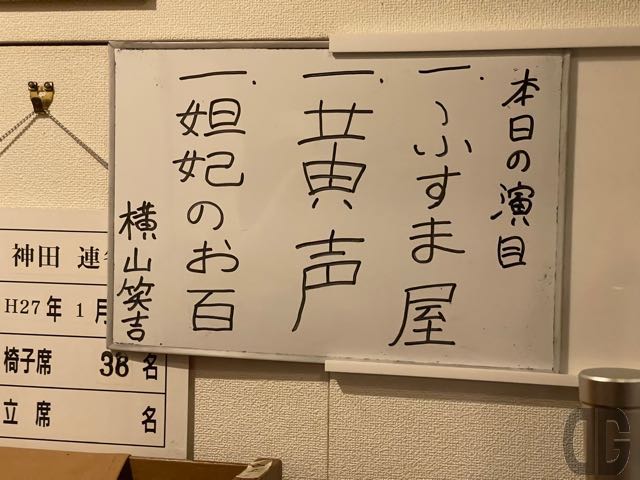 本日の演目
一、ふすま屋
一、黄声
一、妲妃のお百
横山笑吉
神田 連
H27年 1月
椅子席 38 名
立席 名
DG